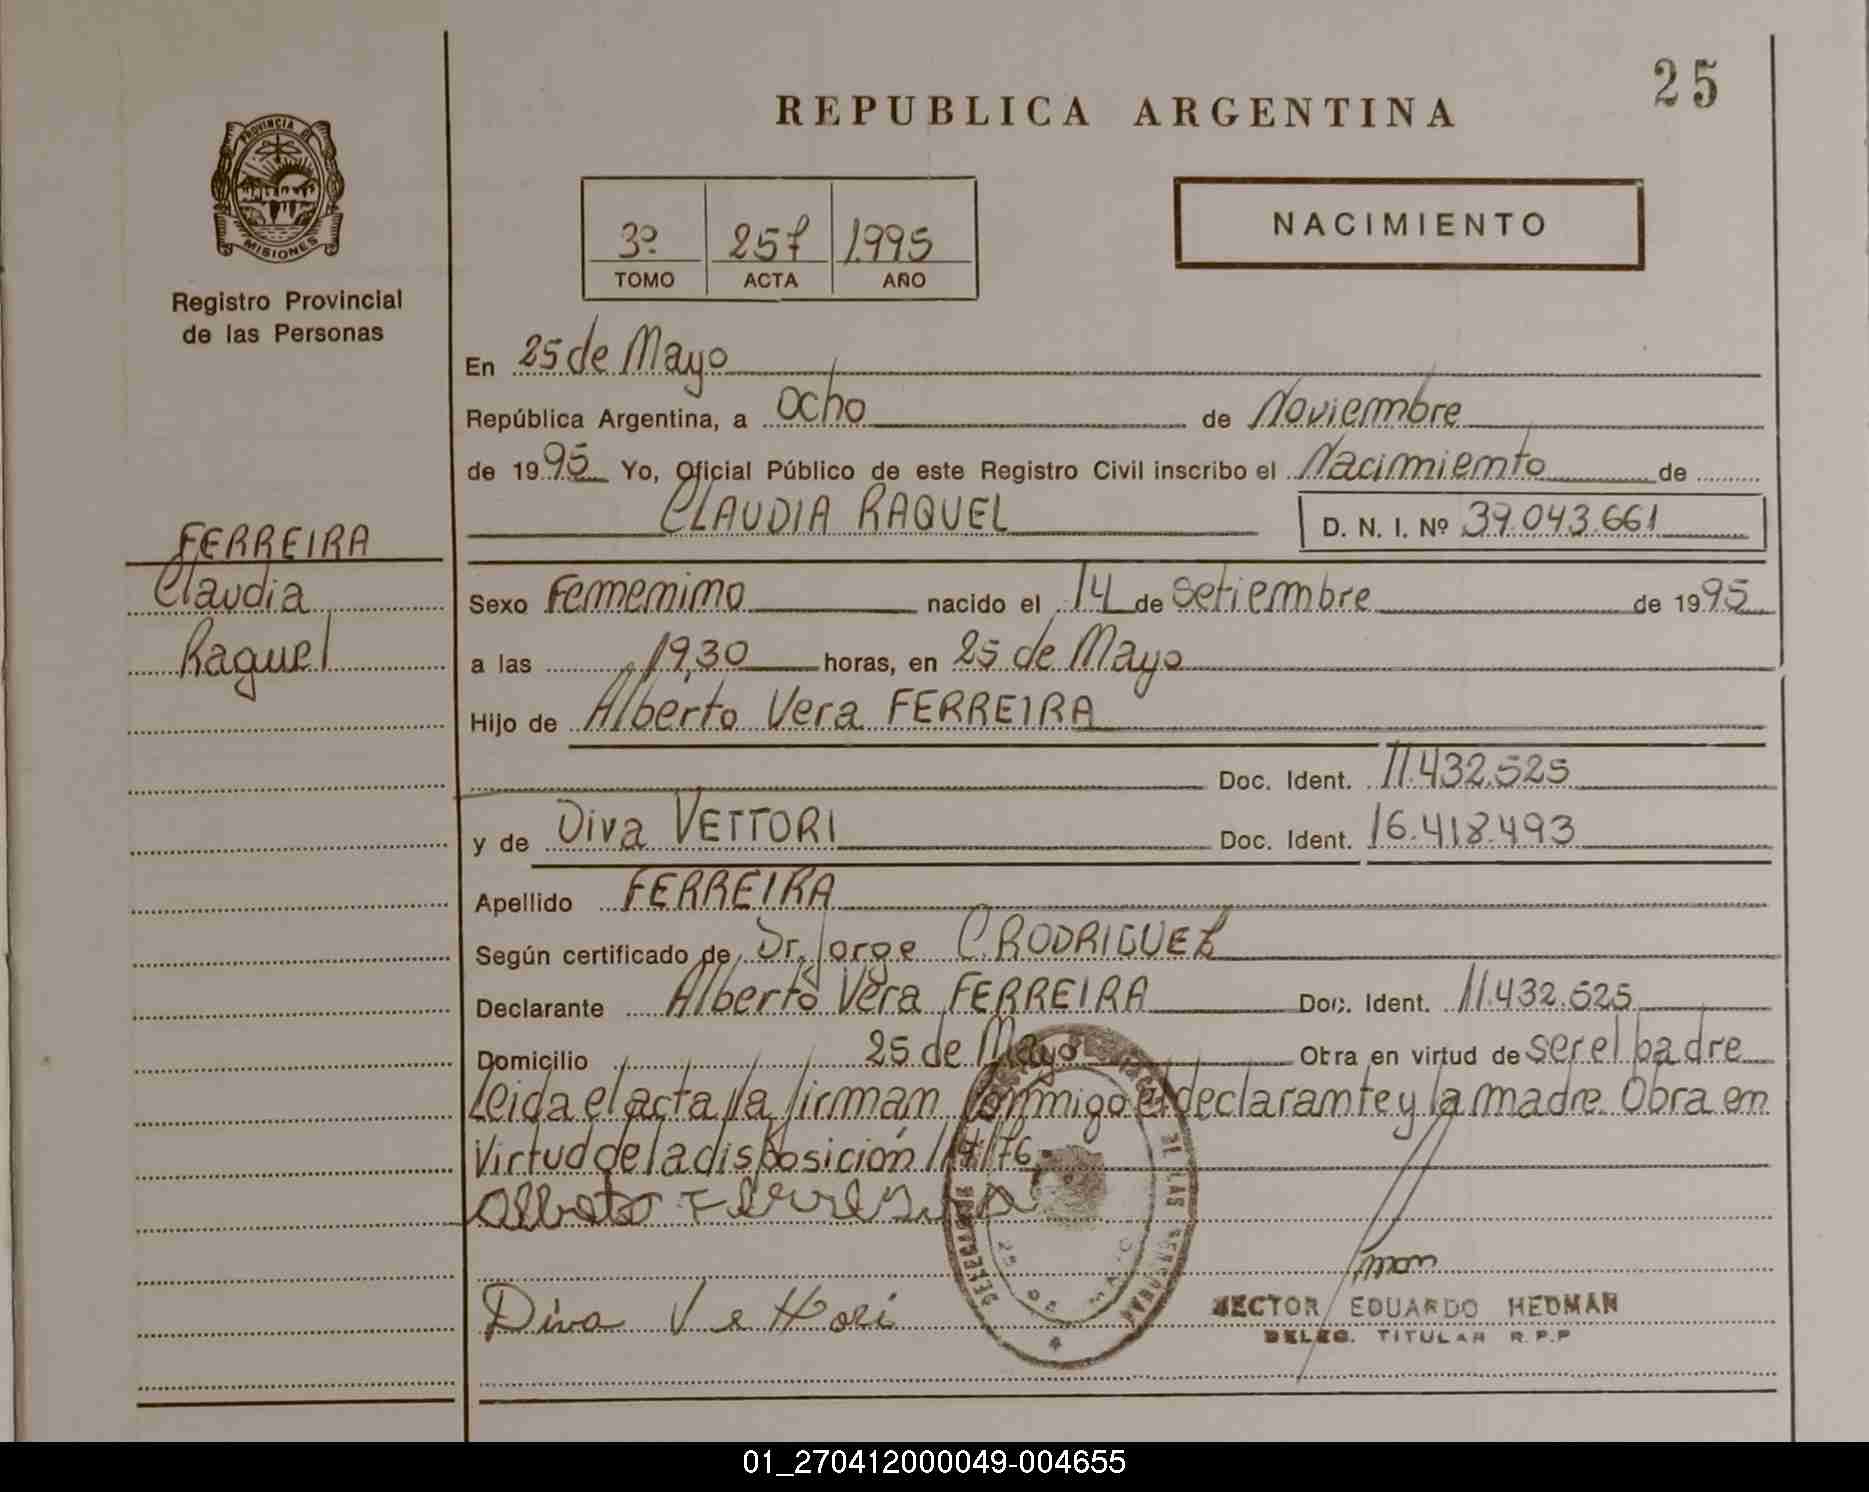 25
REPUBLICA ARGENTINA
PROVINCIA DE
MISIONES
Registro Provincial
de las Personas
3º 257 1995
TOMO ACTA AÑO
NACIMIENTO
En 25 de Mayo
República Argentina, a ocho de Noviembre
de 1995 Yo, Oficial Público de este Registro Civil inscribo el Nacimiento de
CLAUDIA RAQUEL D. N. I. Nº 39.043.661
FERREIRA
Claudia
Raquel
Sexo Femenino nacido el 14 de Setiembre de 1995
a las 19,30 horas, en 25 de Mayo
Hijo de Alberto Vera FERREIRA
Doc. Ident. 11.432.525
y de Diva VETTORI Doc. Ident. 16.418.493
Apellido FERREIRA
Según certificado de Dr. Jorge C. RODRIGUEZ
Declarante Alberto Vera FERREIRA Doc. Ident. 11.432.525
Domicilio 25 de Mayo Obra en virtud de ser el padre
Leida el acta la firman conmigo el declarante y la madre. Obra en
Virtud de la disposición 114/76.
Alberto Ferreira
Diva Vettori
DE LAS PERSONAS
25 DE MAYO
HECTOR EDUARDO HEDMAN
DELEG. TITULAR R.P.P
01_270412000049-004655